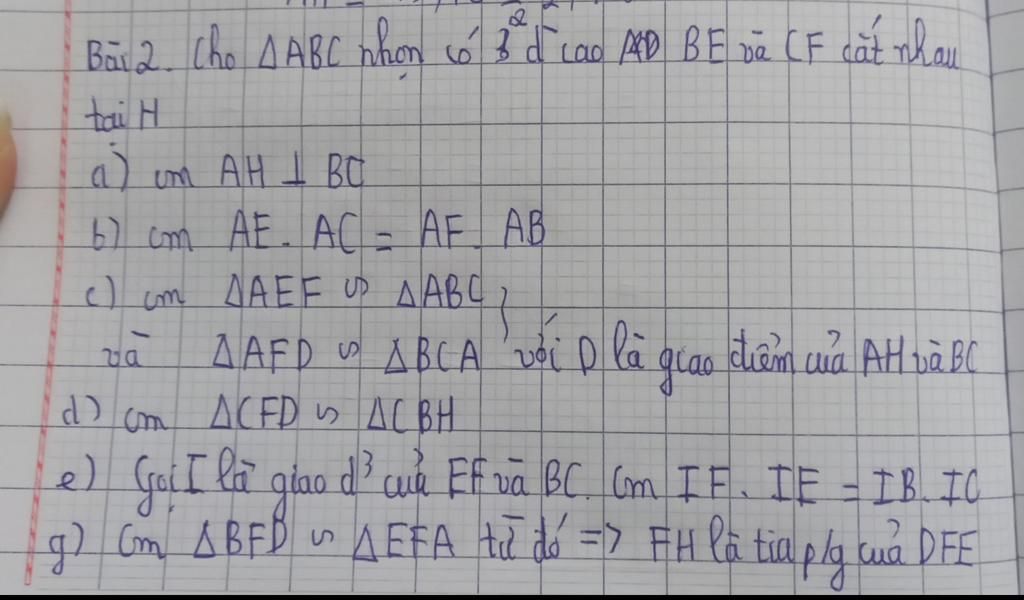 Bài 2. Cho ΔABC nhọn có 2 đ cao BE và CF cắt nhau
tại H
a) cm AH ⊥ BC
b) cm AE. AC = AF. AB
c) cm ΔAEF ∽ ΔABC
và ΔAFD ∽ ΔBCA với D là giao điểm của AH và BC
d) cm ΔCFD ∽ ΔCBH
e) Gọi I là giao đ³ của EF và BC. Cm IF. IE = IB. IC
g) Cm ΔBFD ∽ ΔEFA từ đó => FH là tia p/g của DFE